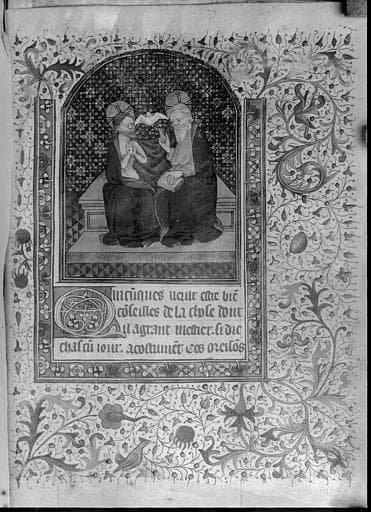 Quicūques veult estre biē
cōseilles de la chose dont
il a grant mestier. si die
chascū iour. acoustumēt ces oreisōs